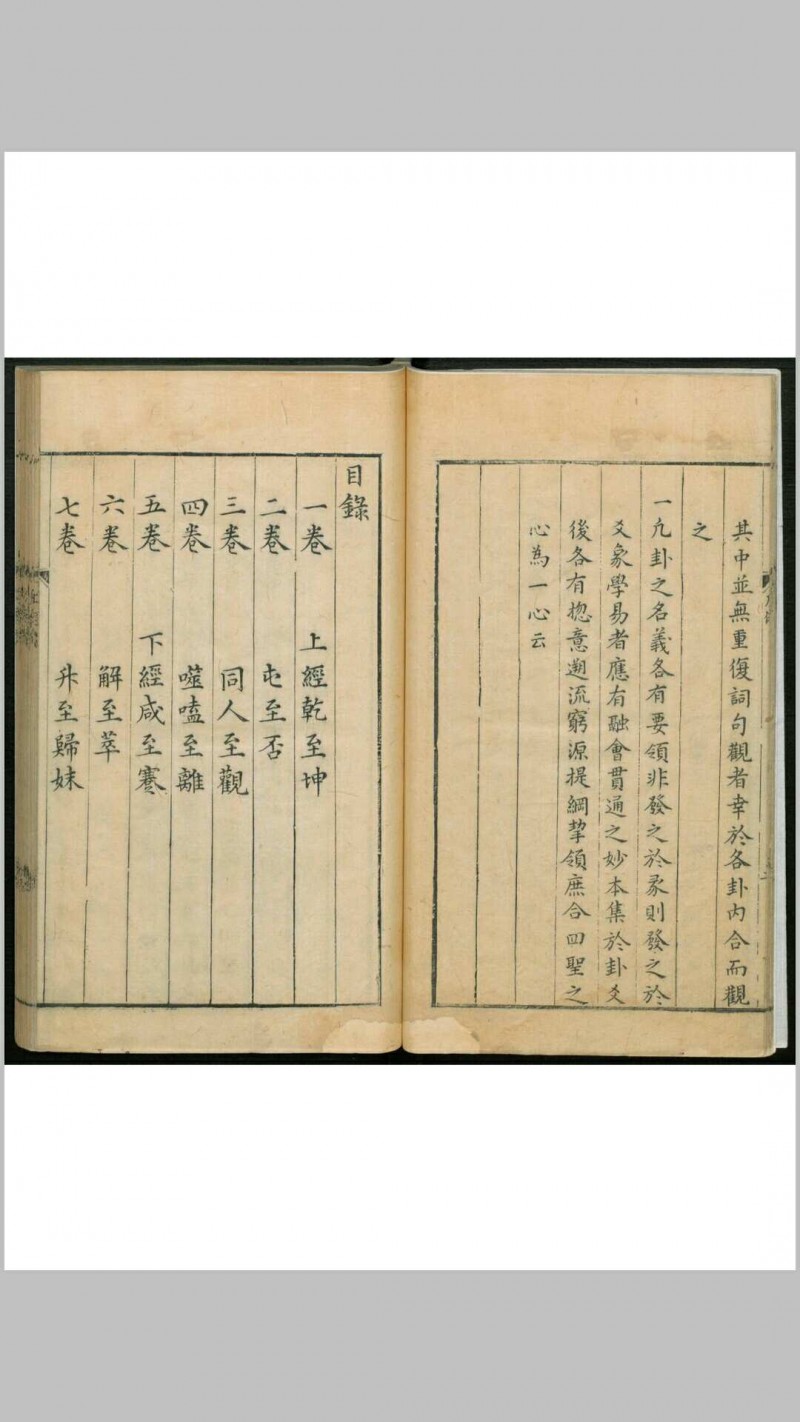 其中並無重復詞句觀者幸於各卦內合而觀
之
一凢卦之名義各有要領非發之於彖則發之於
爻象學易者應有融會貫通之妙本集於卦爻
後各有揔意遡流窮源提綱挈領庶合四聖之
心為一心云
目錄
一卷 上經乾至坤
二卷 屯至否
三卷 同人至觀
四卷 噬嗑至離
五卷 下經咸至蹇
六卷 解至萃
七卷 升至歸妹